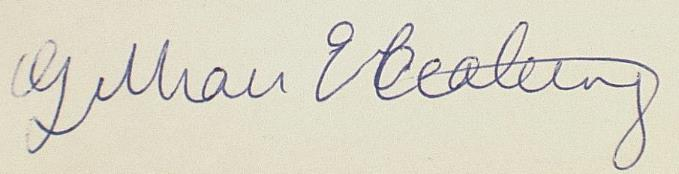 Gillian E Keating